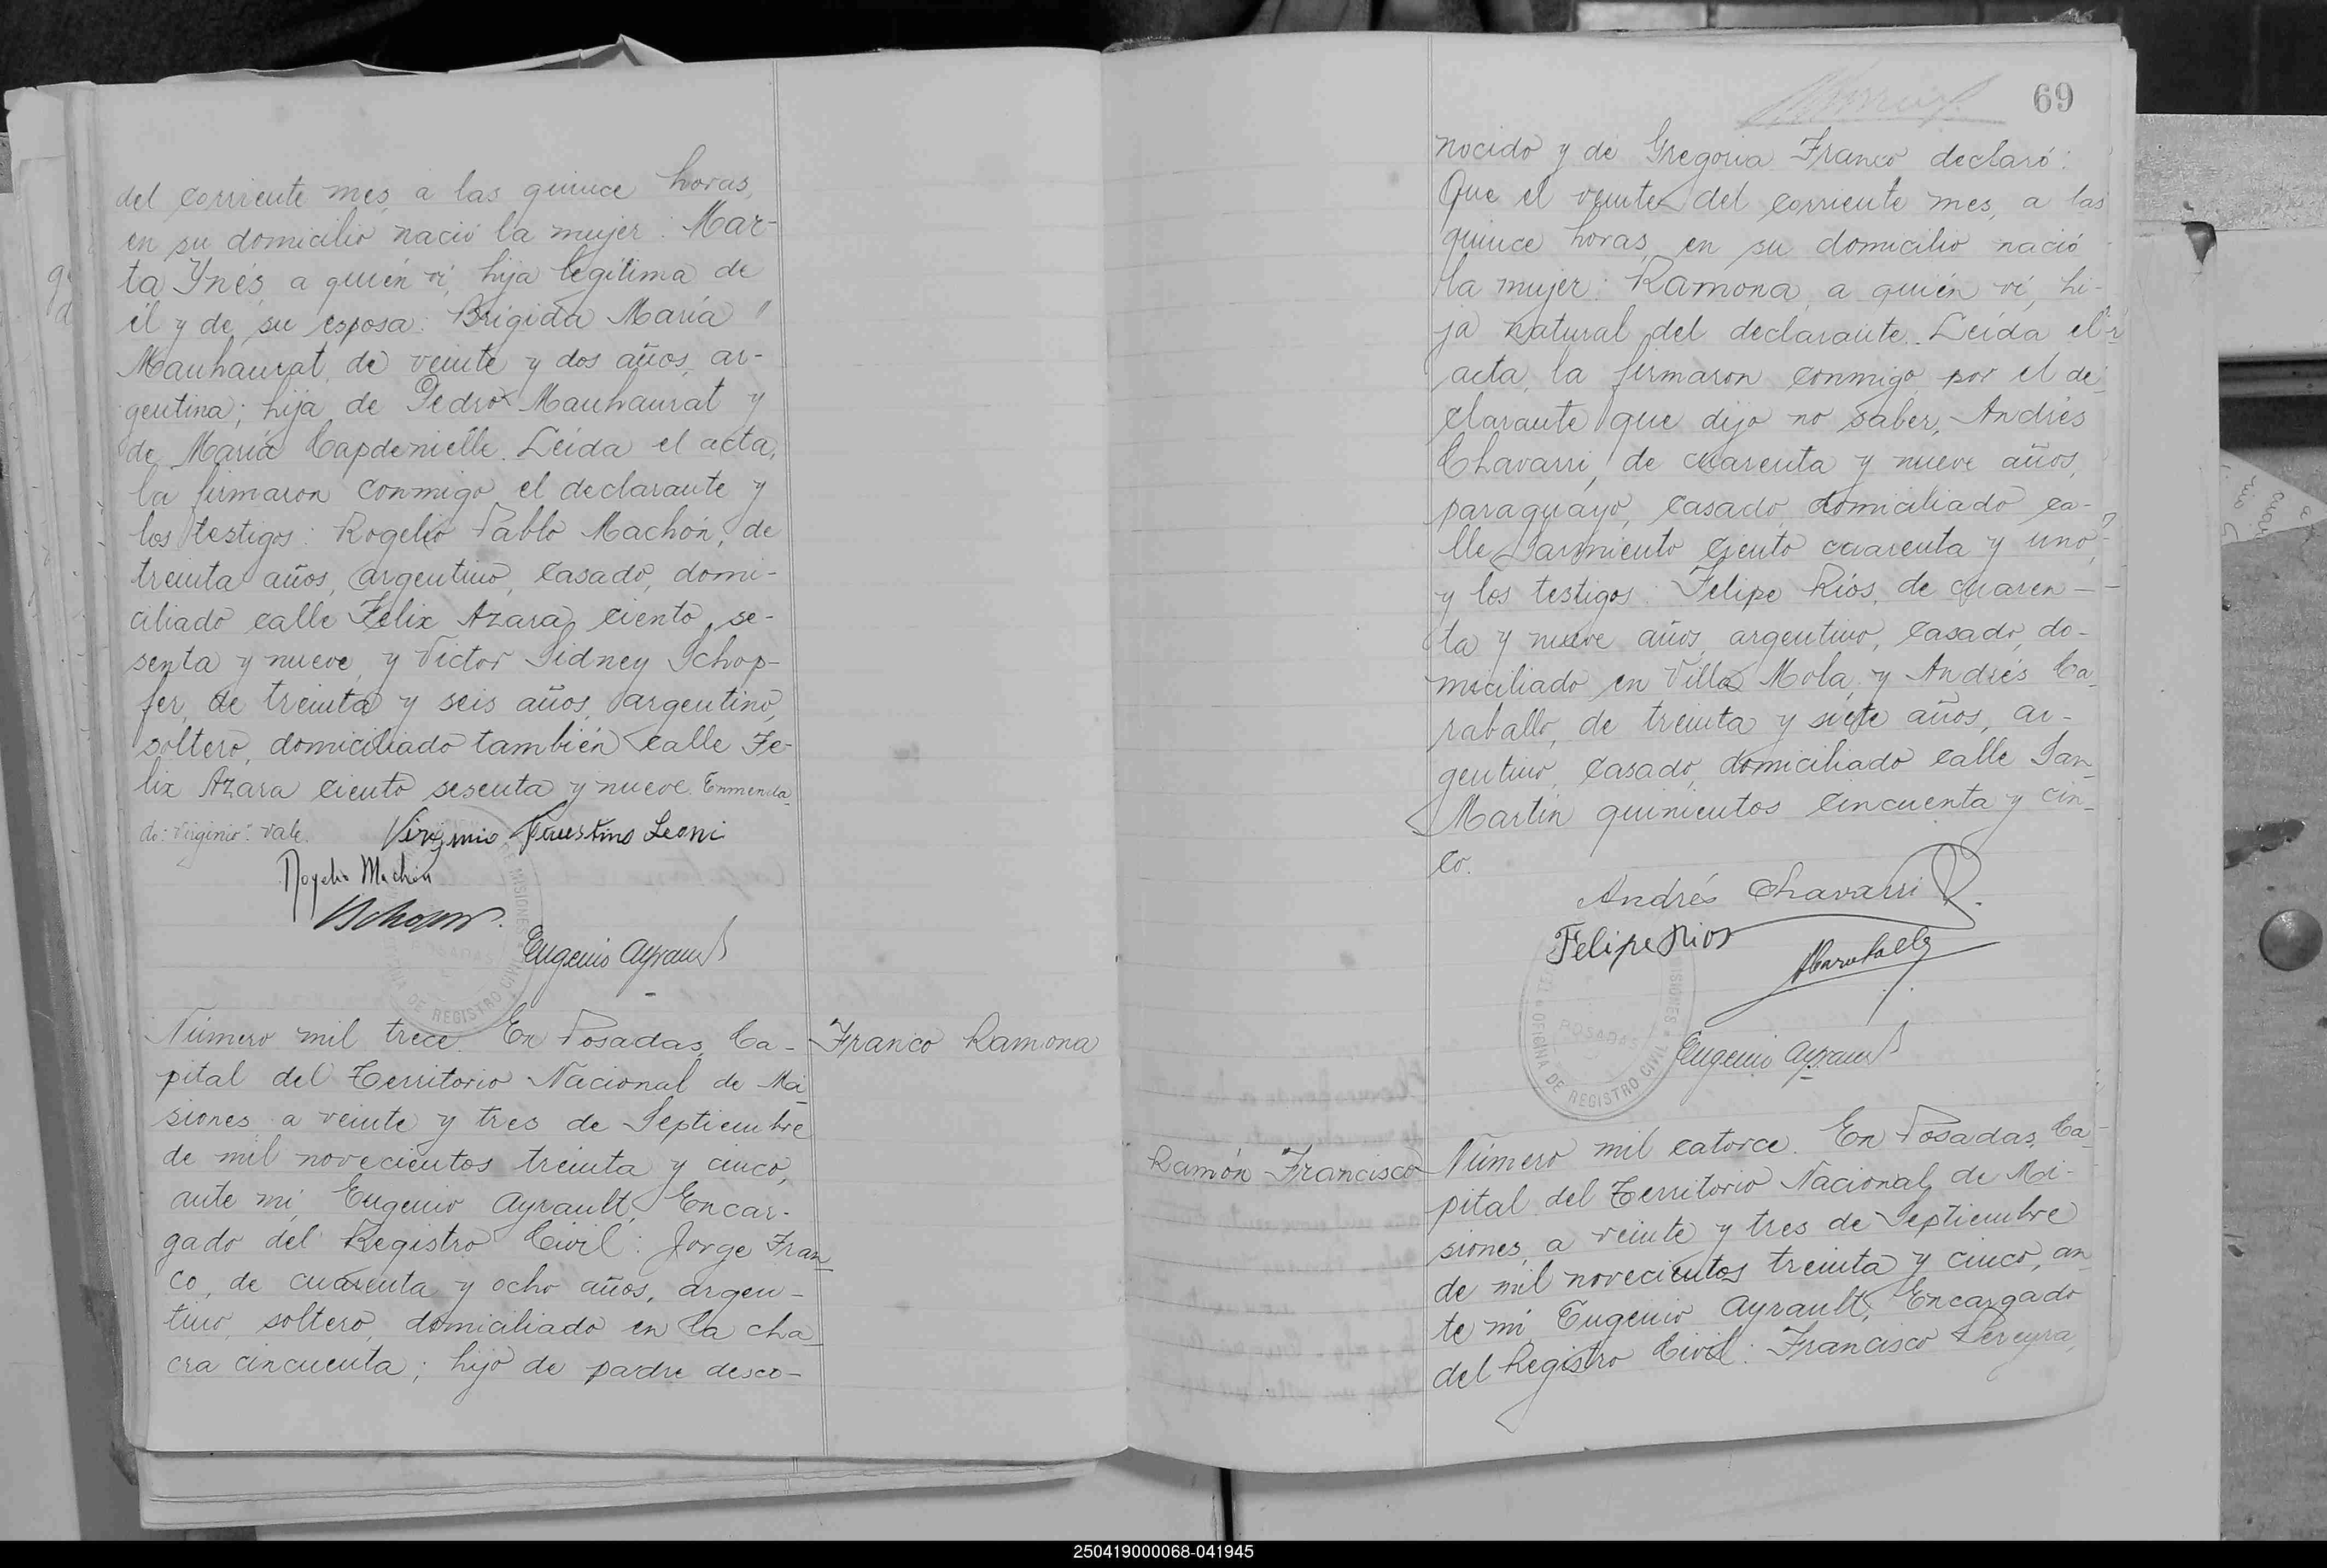 del corriente mes, a las quince horas,
en su domicilio nació la mujer: Mar-
ta Ynés, a quién ví, hija legítima de
él y de su esposa: Brígida María "
Mauhaurat, de veinte y dos años, ar-
gentina; hija de Pedro Mauhaurat y
de María Capdevielle. Leída el acta,
la firmaron conmigo el declarante y
los testigos: Rogelio Pablo Machón, de
treinta años, argentino, casado, domi-
ciliado calle Felix Azara ciento se-
senta y nueve, y Victor Sidney Schop-
fer, de treinta y seis años, argentino,
soltero, domiciliado también calle Fe-
lix Azara ciento sesenta y nueve. Enmenda
do: "Virginio". Vale.
Virginio Faustino Leoni
Rogelio Machón
Eugenio Ayrault
Número mil trece. En Posadas, Ca-
pital del Territorio Nacional de Mi
siones a veinte y tres de Septiembre
de mil novecientos treinta y cinco,
ante mí, Eugenio Ayrault, Encar-
gado del Registro Civil: Jorge Fran
co, de cuarenta y ocho años, argen-
tino, soltero, domiciliado en la cha
cra cincuenta; hijo de padre desco-
Franco Ramona
69
nocido y de Gregoria Franco declaró:
Que el veinte del corriente mes, a las
quince horas, en su domicilio nació
la mujer: Ramona, a quién ví, hi-
ja natural del declarante. Leída el
acta, la firmaron conmigo por el de
clarante que dijo no saber, Andrés
Chavarri, de cuarenta y nueve años,
paraguayo, casado, domiciliado ca-
lle Sarmiento ciento cuarenta y uno,
y los testigos: Felipe Ríos, de cuaren-
ta y nueve años, argentino, casado, do-
miciliado en Villa Mola, y Andrés Ca
raballo, de treinta y siete años, ar-
gentino, casado, domiciliado calle San
Martín quinientos cincuenta y cin-
co.
Andrés Chavarri
Felipe Rios
ACaraballo
POSADAS
OFICINA DE REGISTRO CIVIL
MISIONES
Eugenio Ayrault
Ramón Francisco
Número mil catorce. En Posadas, Ca-
pital del Territorio Nacional de Mi-
siones, a veinte y tres de Septiembre
de mil novecientos treinta y cinco, an
te mí, Eugenio Ayrault, Encargado
del Registro Civil: Francisco Pereyra,
250419000068-041945